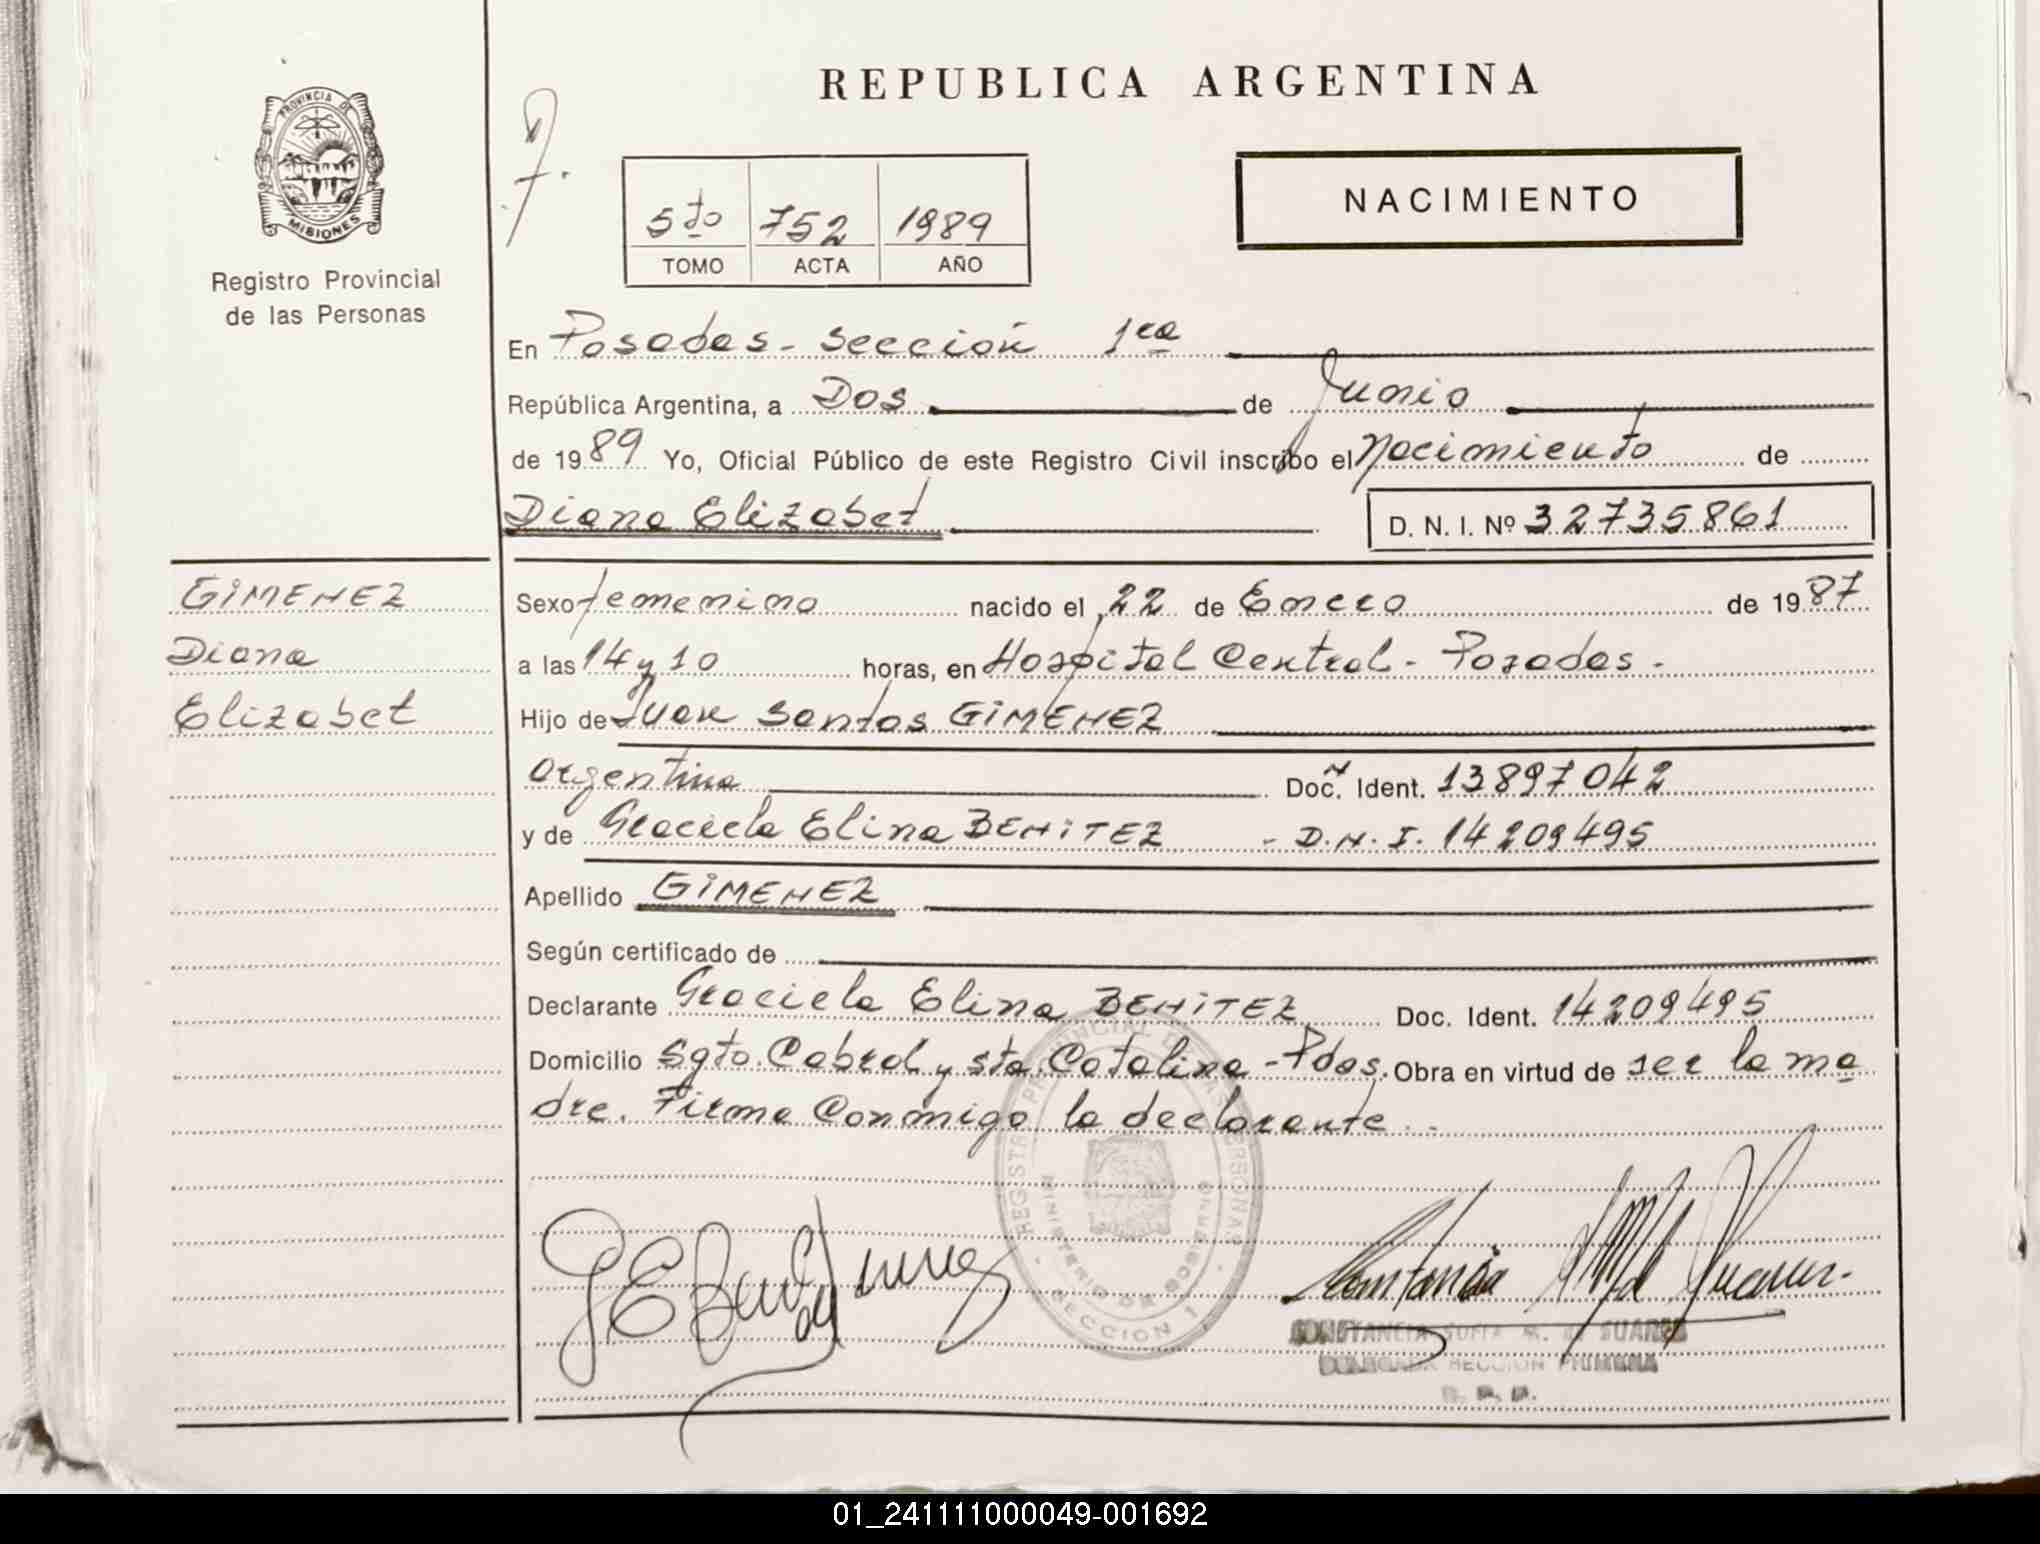 PROVINCIA DE
MISIONES
Registro Provincial
de las Personas
REPUBLICA ARGENTINA
NACIMIENTO
5to 752 1989
TOMO ACTA AÑO
En Posadas - Sección 1ra
República Argentina, a Dos de Junio
de 1989 Yo, Oficial Público de este Registro Civil inscribo el Nacimiento de
Diana Elizabet D. N. I. Nº 32735861
GIMENEZ
Diana
Elizabet
Sexo femenino nacido el 22 de Enero de 1987
a las 14 y 10 horas, en Hospital Central - Posadas -
Hijo de Juan Santos GIMENEZ
Argentina Doc. Ident. 13897042
y de Graciela Elina BENITEZ - D.N.I. 14209495
Apellido GIMENEZ
Según certificado de
Declarante Graciela Elina BENITEZ Doc. Ident. 14209495
Domicilio Sgto. Cabral y Sta. Catalina - Pdas. Obra en virtud de ser la ma
dre. Firma Conmigo la declarante.
REGISTRO PROVINCIAL DE LAS PERSONAS
MINISTERIO DE GOBIERNO
SECCION 1
CONSTANCIA SOFIA M. de SUAREZ
SECCION PRIMERA
01_241111000049-001692